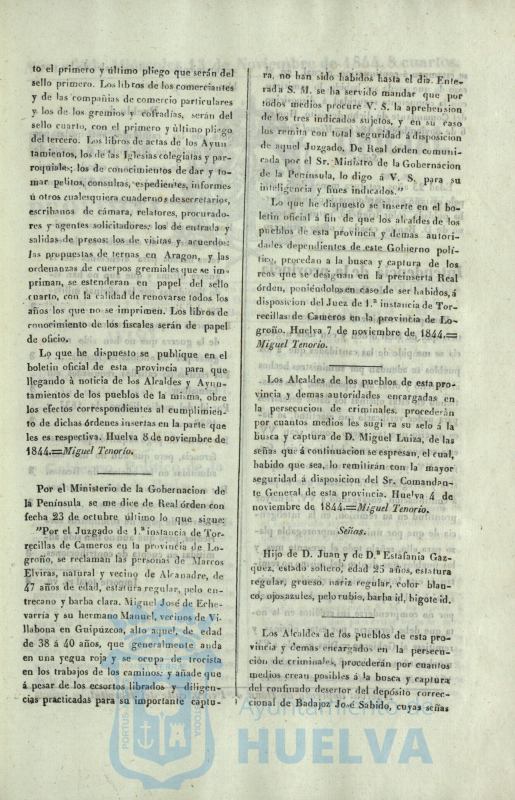 to el primero y último pliego que serán del
sello primero. Los libros de los comerciantes
y de las compañias de comercio particulares
y los de los gremios y cofradías, serán del
sello cuarto, con el primero y último pliego
del tercero. Los libros de actas de los Ayun
tamientos, los de las Iglesias colegiatas y par-
roquiales; los de conocimientos de dar y to-
mar pleitos, consultas, espedientes, informes
ú otros cualesquiera cuadernos de secretarios,
escribanos de cámara, relatores, procurado-
res y agentes solicitadores: los de entrada y
salidas de presos: los de visitas y acuerdos:
las propuestas de ternas en Aragon, y las
ordenanzas de cuerpos gremiales que se im-
priman, se estenderan en papel del sello
cuarto, con la calidad de renovarse todos los
años los que no se imprimen. Los libros de
conocimiento de los fiscales serán de papel
de oficio.
Lo que he dispuesto se publique en el
boletin oficial de esta provincia para que
llegando à noticia de los Alcaldes y Ayun-
tamientos de los pueblos de la misma, obre
los efectos correspondientes al cumplimien-
to de dichas órdenes insertas en la parte que
les es respectiva. Huelva 8 de noviembre de
1844.=Miguel Tenorio.
Por el Ministerio de la Gobernacion de
la Península se me dice de Real órden con
fecha 23 de octubre último lo que sigue:
"Por el Juzgado de 1.ª instancia de Tor-
recillas de Cameros en la provincia de Lo-
groño, se reclaman las personas de Marcos
Elviras, natural y vecino de Alcanadre, de
47 años de edad, estatura regular, pelo en-
trecano y barba clara. Miguel José de Eche-
varria y su hermano Manuel, vecinos de Vi-
llabona en Guipúzcoa, alto aquel, de edad
de 38 á 40 años, que generalmente anda
en una yegua roja y se ocupa de trocista
en los trabajos de los caminos: y añade que
á pesar de los ecsortos librados y diligen-
cias practicadas para su importante captu-
ra, no han sido habidos hasta el dia. Ente-
rada S. M. se ha servido mandar que por
todos medios procure V. S. la aprehension
de los tres indicados sujetos, y en su caso
los remita con total seguridad á disposicion
de aquel Juzgado. De Real órden comuni-
cada por el Sr. Ministro de la Gobernacion
de la Península, lo digo á V. S. para su
inteligencia y fines indicados."
Lo que he dispuesto se inserte en el bo-
letin oficial á fin de que los alcaldes de los
pueblos de esta provincia y demas autori-
dades dependientes de este Gobierno polí-
tico, procedan a la busca y captura de los
reos que se designan en la preinserta Real
órden, poniéndolos en caso de ser habidos, á
disposicion del Juez de 1.ª instancia de Tor-
recillas de Cameros en la provincia de Lo-
groño. Huelva 7 de noviembre de 1844.=
Miguel Tenorio.
Los Alcaldes de los pueblos de esta pro-
vincia y demas autoridades encargadas en
la persecucion de criminales, procederán
por cuantos medios les sugi ra su selo á la
busca y captura de D. Miguel Luiza, de las
señas que á continuacion se espresan, el cual,
habido que sea, lo remitirán con la mayor
seguridad á disposicion del Sr. Comandan-
te General de esta provincia. Huelva 4 de
noviembre de 1844.=Miguel Tenorio.
Señas.
Hijo de D. Juan y de D.ª Estafanía Gaz-
quez, estado soltero, edad 25 años, estatura
regular, grueso, nariz regular, color blan-
co, ojos azules, pelo rubio, barba id, bigote id.
Los Alcaldes de los pueblos de esta pro-
vincia y demas encargados en la persecu-
cion de criminales, procederán por cuantos
medios crean posibles á la busca y captura
del confinado desertor del depósito correc-
cional de Badajoz José Sabido, cuyas señas
Ayuntamiento de
HUELVA